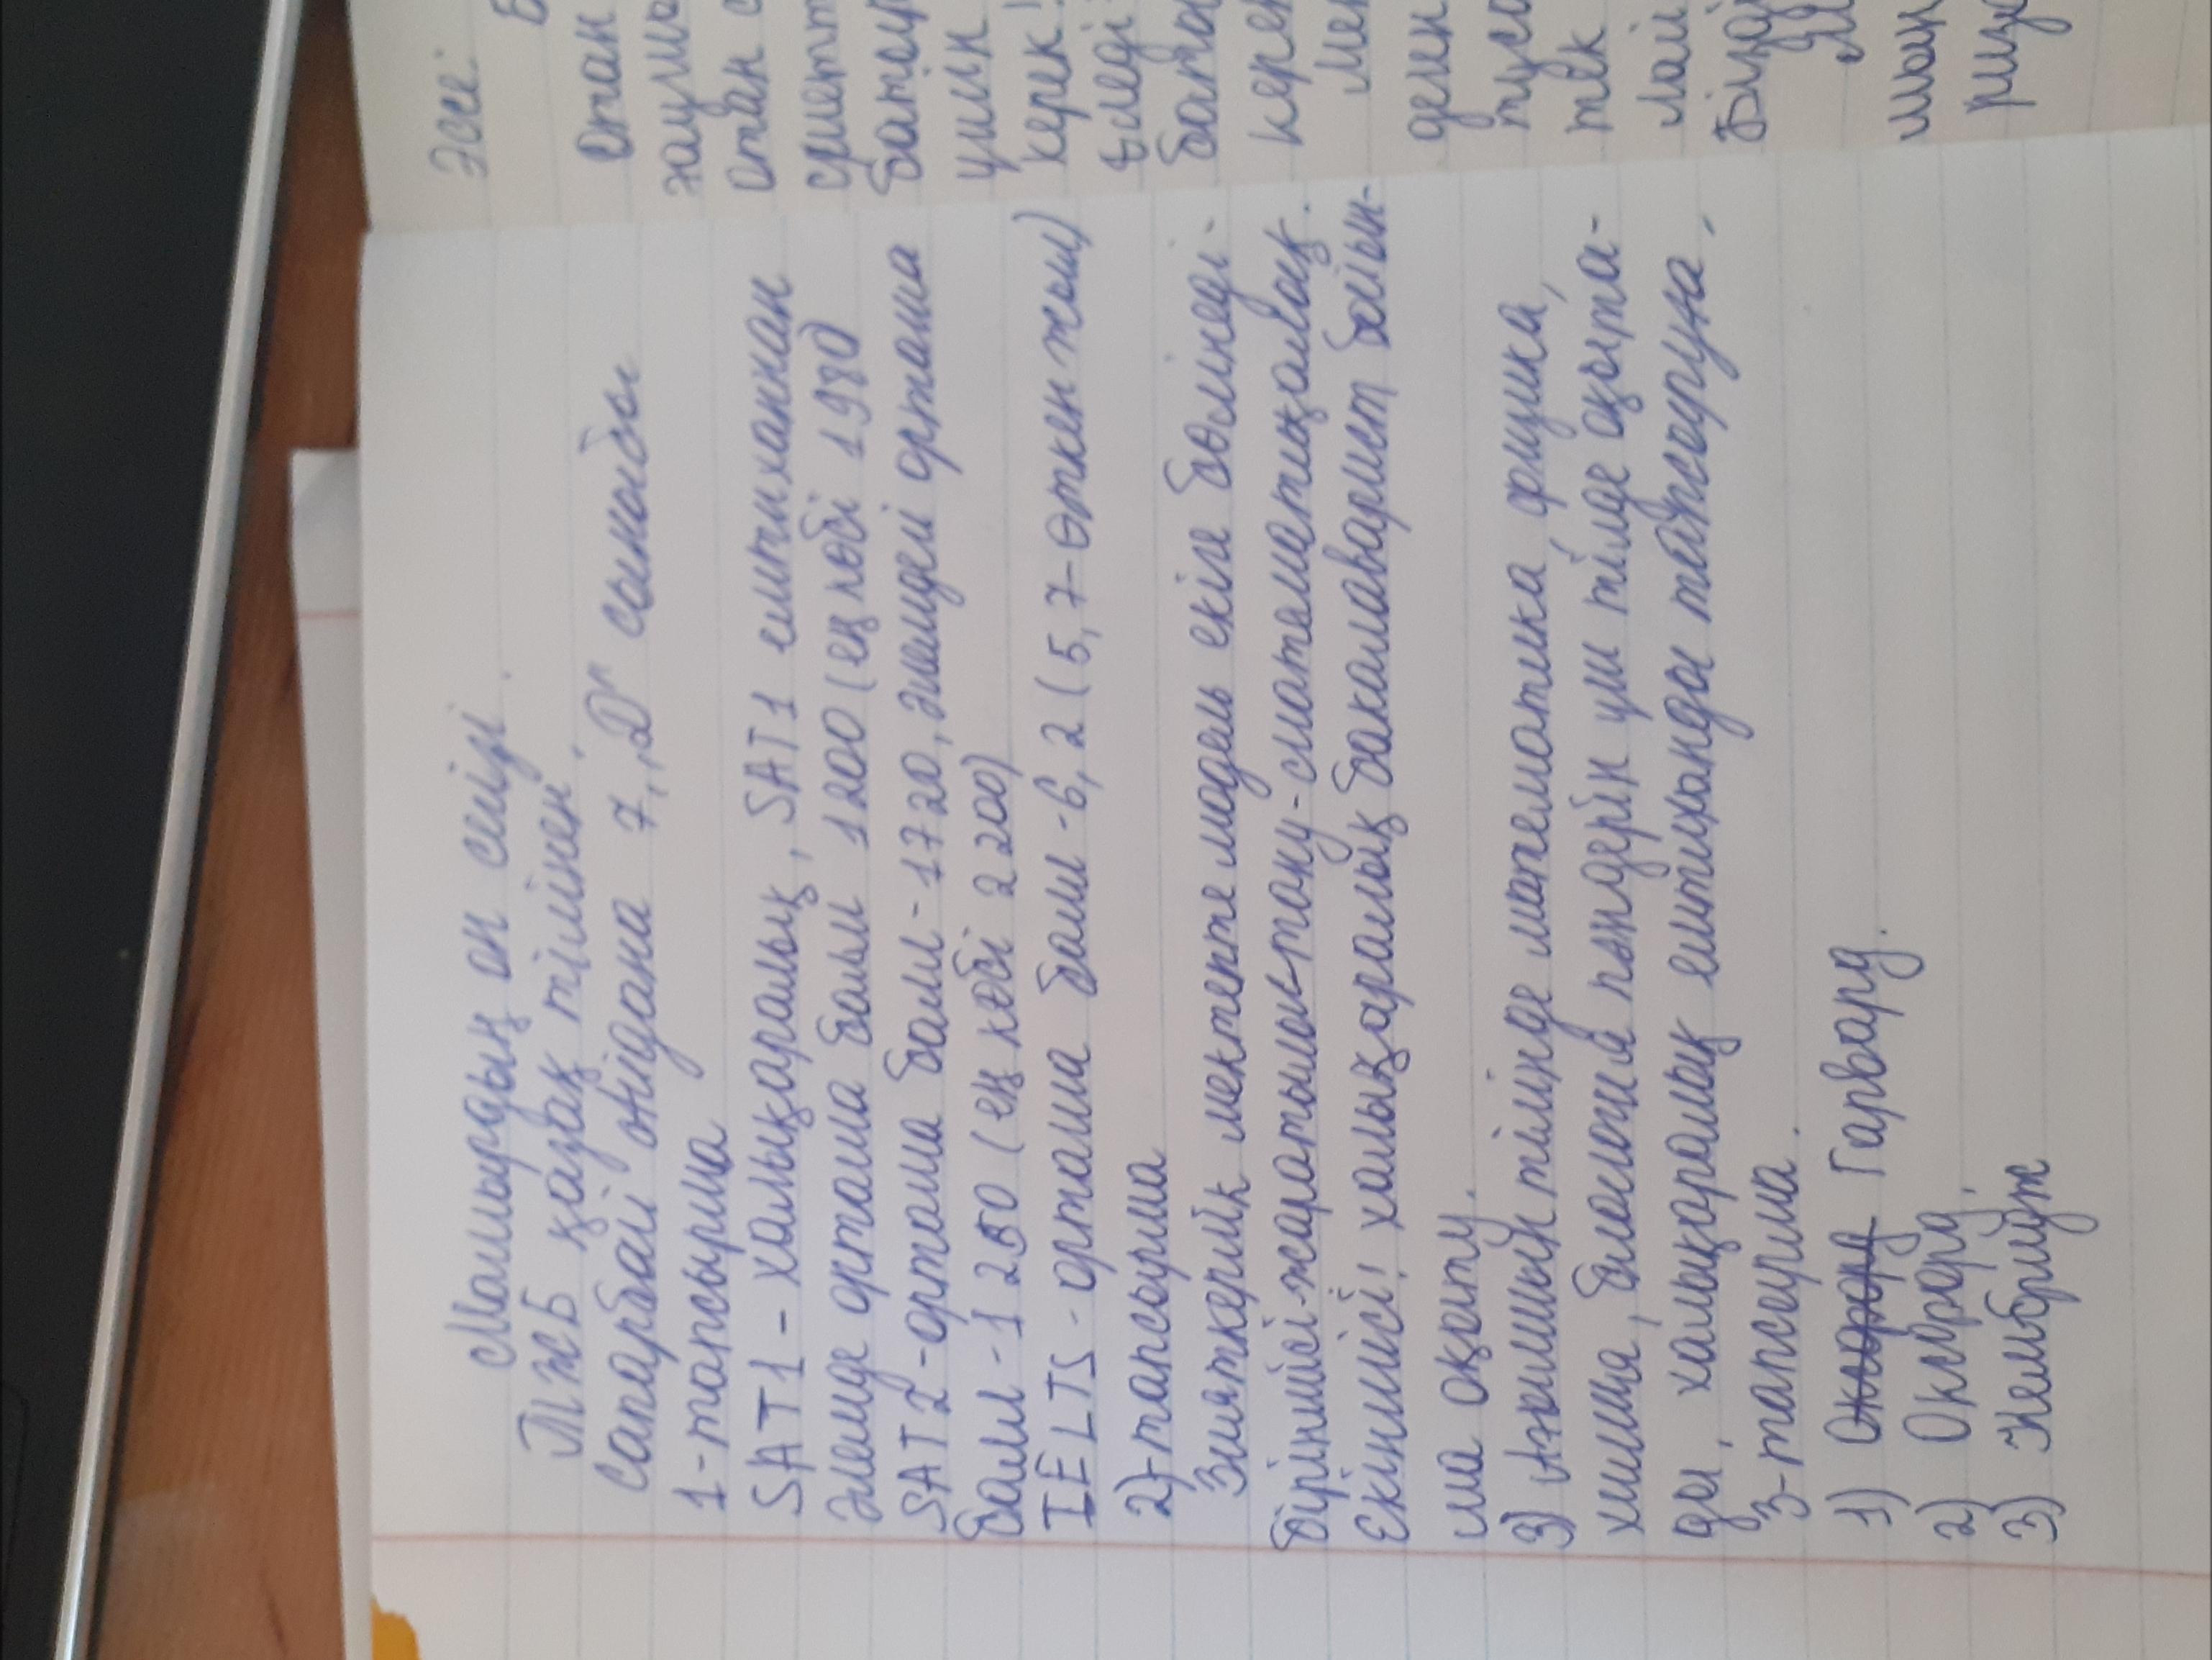 Мамырдың он сегізі.
ТЖБ қазақ тілінен.
Сапарбай Айдана 7,,D" сыныбы
1-тапсырма
SAT1 - халықаралық, SAT1 емтиханнан
әлемде орташа балл 1200 (ең көбі 1980
SAT2-орташа балл-1720, әлемдегі орташа
балл-1250 (ең көбі 2200)
IELTS - орташа балл -6,2 (5,7-өткен жылы)
2)-тапсырма
Зияткерлік мектепте модель екіге бөлінеді.
Біріншісі-жаратылыстану-математикалық.
Екіншісі: халықаралық бакалавариат бойын-
ша оқыту.
3) Ағылшын тілінде математика физика,
химия, биология пәндерін үш тілде оқыта-
ды, халықаралық емтиханды тапсыруға.
3-тапсырма.
1) Гарвард.
2) Оксфорд.
3) Кембридж
Эссе:
Отан
жаулы
отан с
батыр
үшін
керек!
еледі
батыр
керек
Мен
деген
туса
тек